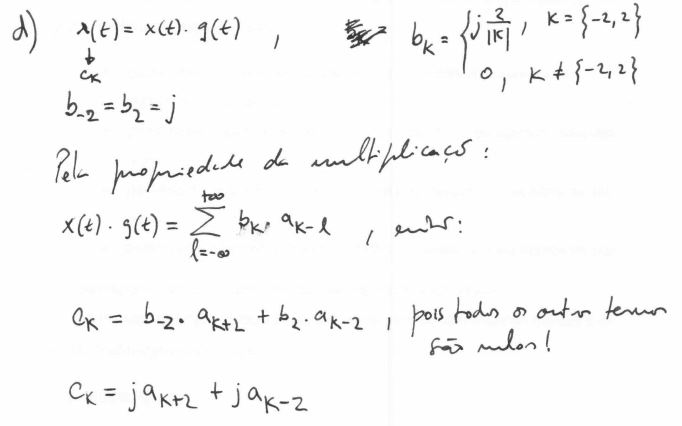 d) r(t) = x(t) · g(t) , b_K = { j 2/|K| , K = {-2, 2}
0 , K ≠ {-2, 2}
↓
c_K
b_-2 = b_2 = j
Pela propriedade da multiplicação:
x(t) · g(t) = ∑_{l=-∞}^{+∞} b_K · a_{K-l} , então:
c_K = b_-2 · a_{K+2} + b_2 · a_{K-2} , pois todos os outros termos
são nulos!
c_K = j a_{K+2} + j a_{K-2}